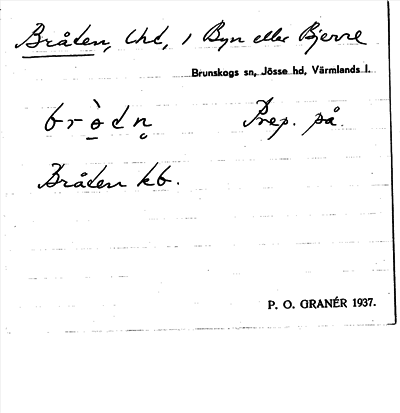 Bråten, Uhd, i Byn eller Bjerre
Brunskogs sn, Jösse hd, Värmlands l.
br ò̱ d n̥ Prep. på.
Bråden kb.
P. O. GRANÉR 1937.